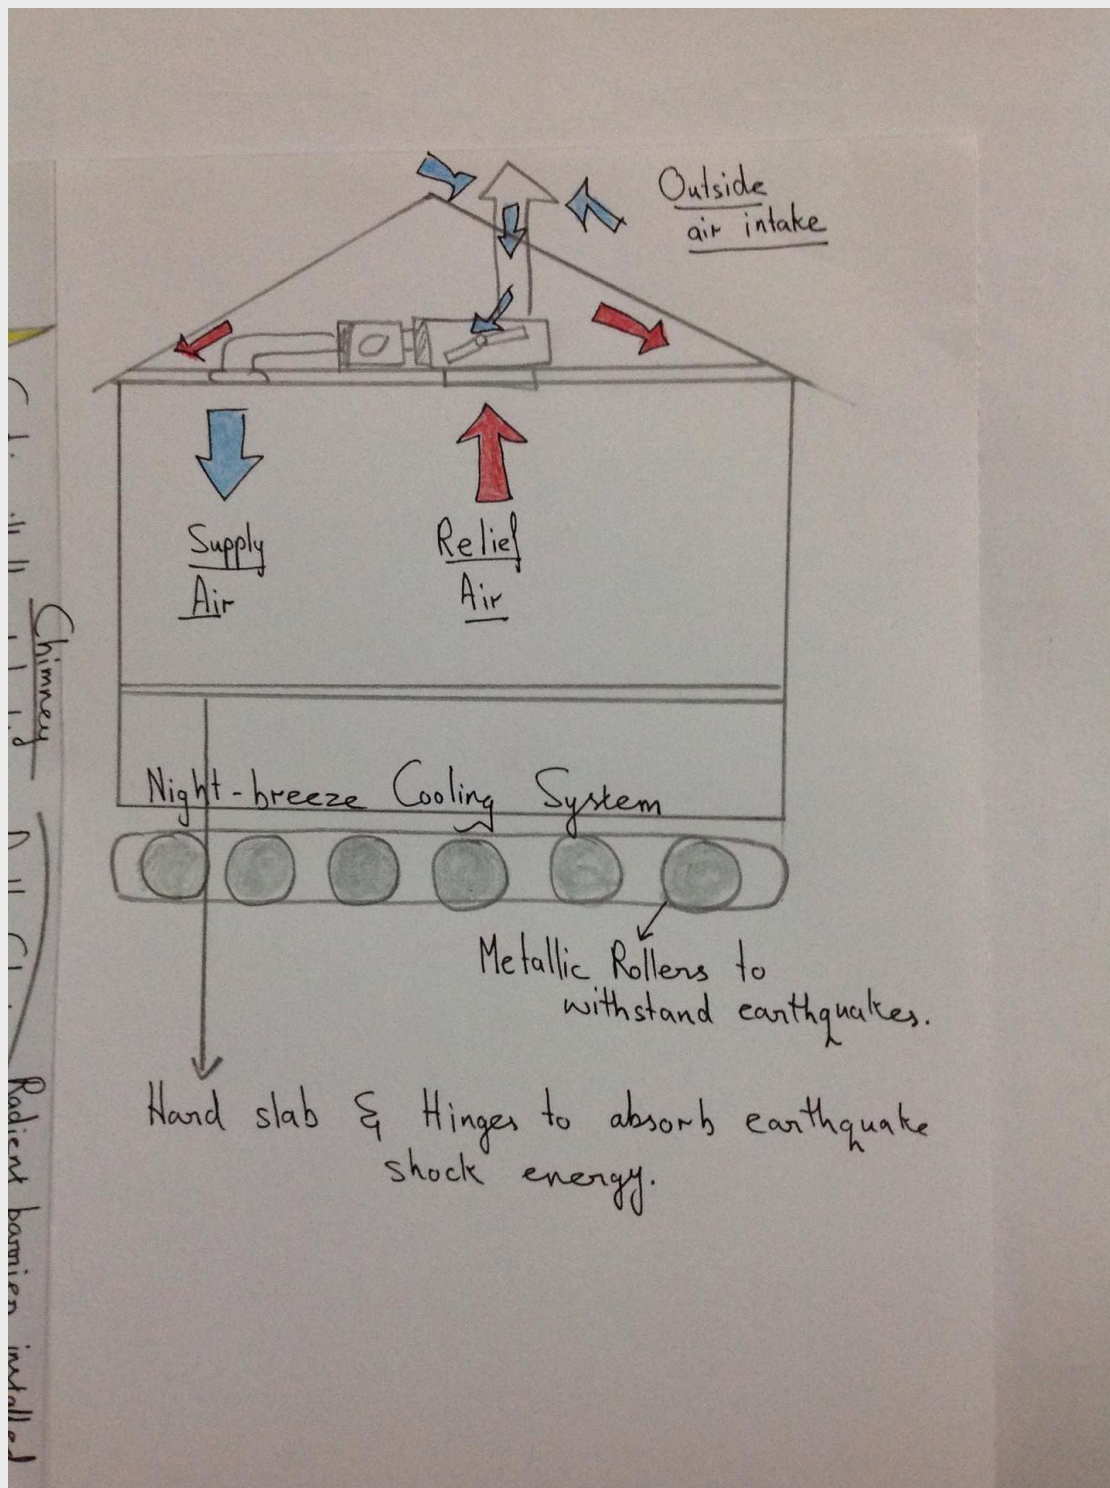 Outside
air intake
Supply
Air
Relief
Air
Night-breeze Cooling System
Metallic Rollers to
withstand earthquakes.
Hard slab & Hinges to absorb earthquake
shock energy.
Chimney
Radient barrier installed